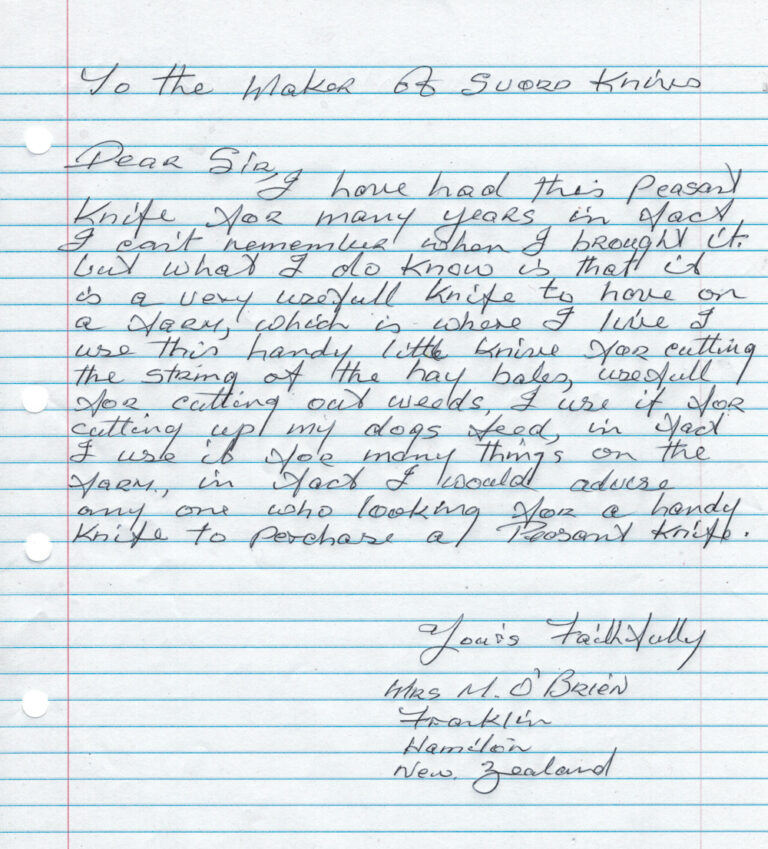 To the Maker of Svord Knives
Dear Sir,
I have had this Peasant
Knife for many years in fact
I can't remember when I brought it.
but what I do know is that it
is a very usefull Knife to have on
a farm, which is where I live I
use this handy little knive for cutting
the string of the hay bales, usefull
for cutting out weeds, I use it for
cutting up my dogs feed, in fact
I use it for many things on the
farm, in fact I would advise
any one who looking for a handy
Knife to perchase a Peasant Knife.
Yours Faithfully
Mrs M. O'Brien
Franklin
Hamilon
New. Zealand